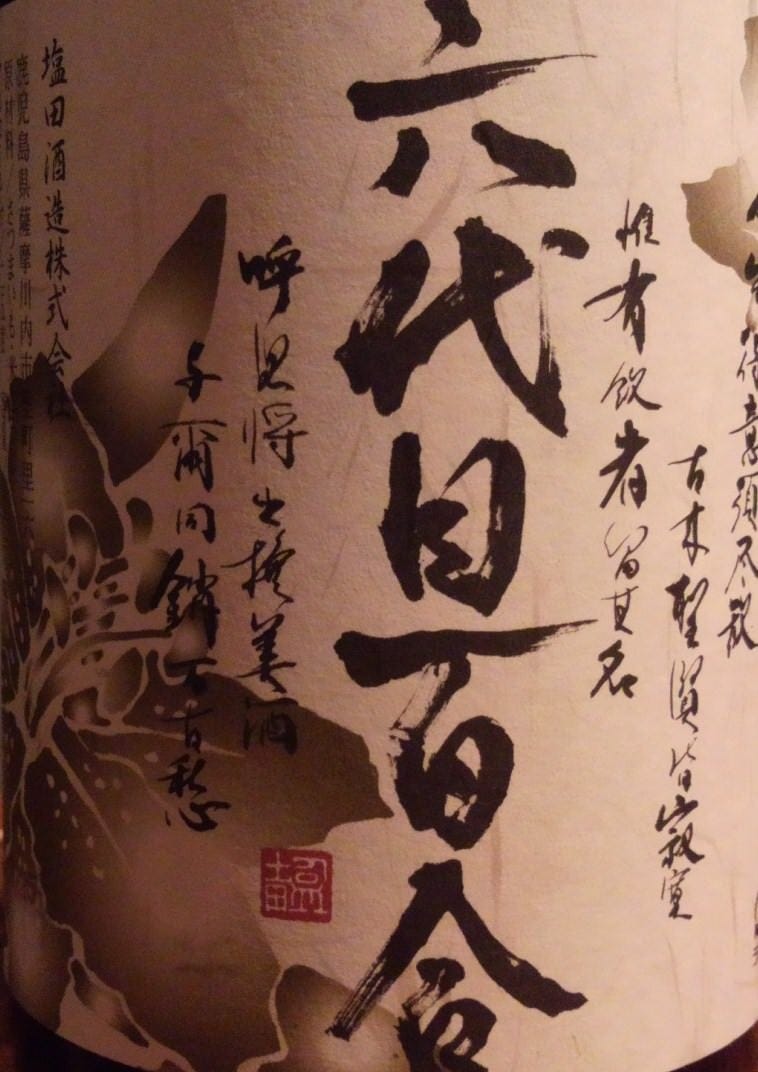 生得意須尽歓
古来聖賢皆寂寞
惟有飲者留其名
六代目百合
呼児将出換美酒
与爾同銷万古愁
塩田酒造株式会社
鹿児島県薩摩川内市里町里
原材料/さつまいも